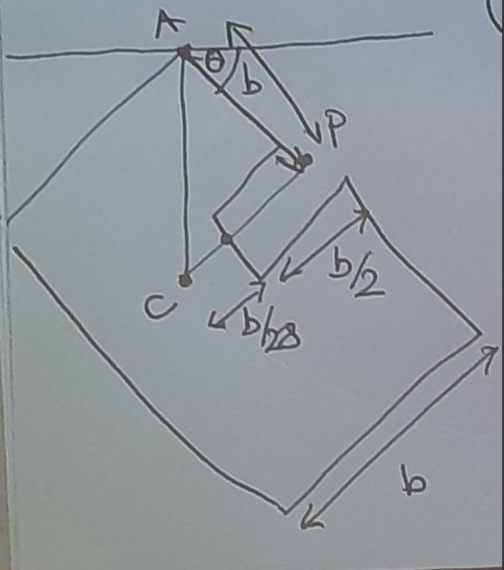 A
θ
b
P
b/2
C
b/28
b